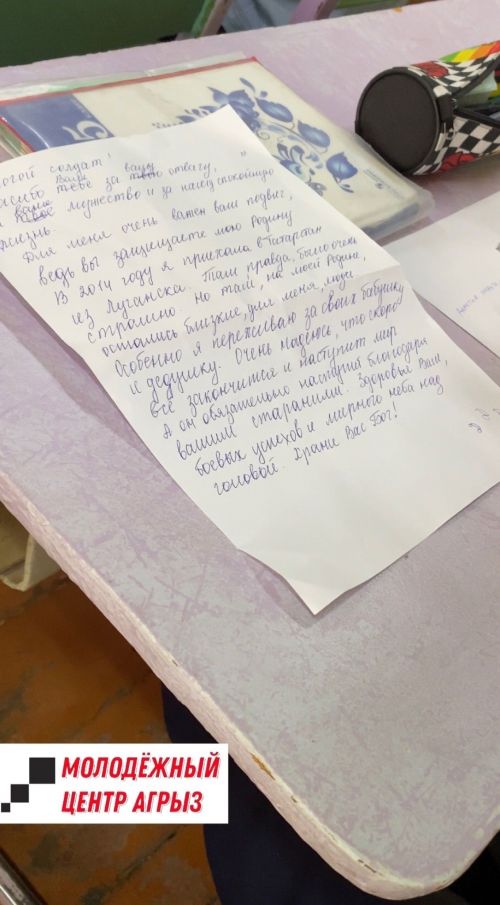 рогой солдат!
Вам вашу
асибо тебе за твою отвагу,
ваше
и твоё мужество и за нашу спокойную
жизнь.
Для меня очень важен ваш подвиг,
ведь вы защищаете мою Родину
В 2014 году я приехала в Татарстан
из Луганска. Там, правда, было очень
страшно. Но там, на моей Родине,
остались близкие для меня люди.
Особенно я переживаю за своих бабушку
и дедушку. Очень надеюсь, что скоро
всё закончится и наступит мир
А он обязательно наступит благодаря
вашим стараниям. Здоровья Вам,
боевых успехов и мирного неба над
головой. Храни Вас Бог!
МОЛОДЁЖНЫЙ
ЦЕНТР АГРЫЗ